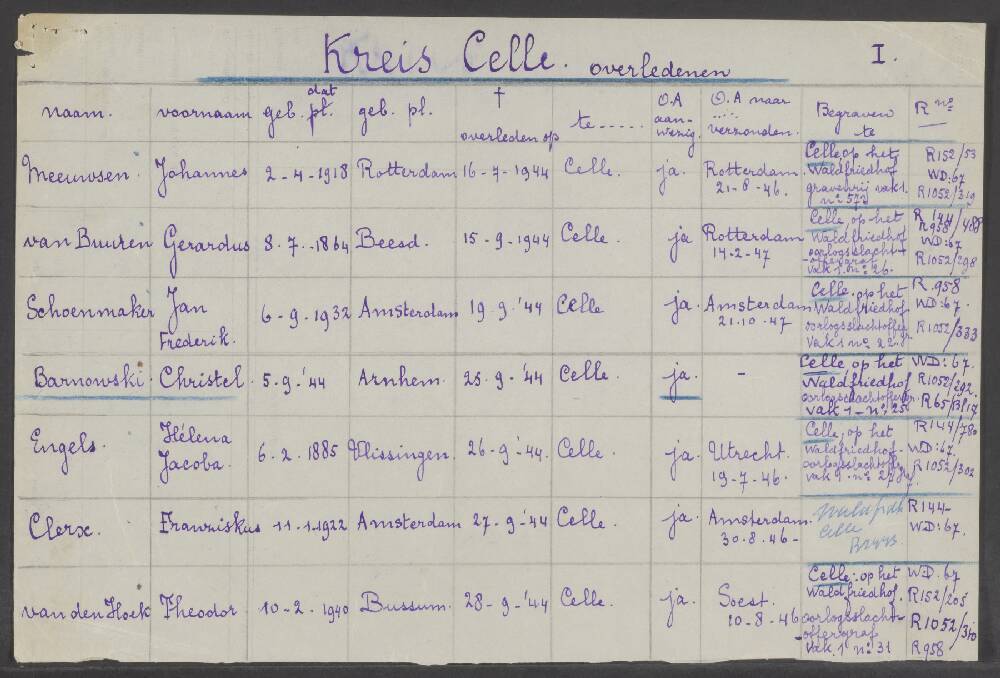 Kreis Celle. overledenen I.
naam. voornaam geb. dat pl. geb. pl. † overleden op te ..... O.A aan-wezig. O.A naar ..... verzonden. Begraven te R nº
Meeuwsen. Johannes 2-4-1918 Rotterdam 16-7-1944 Celle. ja. Rotterdam. 21-8-46.
Celle, op het
Waldfriedhof
gravenrij vak 1.
nº 572
R152/53
WD:67
R1052/319
van Buuren Gerardus 8.7.-1864 Beesd. 15-9-1944 Celle. ja Rotterdam 14-2-47
Celle, op het
Waldfriedhof
oorlogsslacht-
-offergraf
vak 1. nº 26.
R 174/488
R958
WD:67
R1052/298
Schoenmaker Jan Frederik. 6-9-1932 Amsterdam 19-9-'44 Celle ja. Amsterdam 21.10-47
Celle, op het
Waldfriedhof
oorlogsslachtoffergr.
vak 1 nº 22.
R.958
WD:67.
R1052/333
Barnowski. Christel. 5.9-'44 Arnhem. 25.9-'44 Celle. ja. -
Celle op het
Waldfriedhof
oorlogsslachtoffergr.
vak 1-nº 25
WD:67.
R1052/292.
R65/Bl17
Engels. Hélena Jacoba. 6.2.1885 Vlissingen. 26-9-'44. Celle. ja. Utrecht. 19-7-46.
Celle, op het
Waldfriedhof-
oorlogsslachtoffergr.
vak 1. nº 27
R144/780
WD:67.
R1052/302
Clerx. Franziskus 11-1-1922 Amsterdam 27-9-'44 Celle. ja. Amsterdam. 30.8.46-
Celle
R144-
WD:67.
van den Hoek Theodor. 10-2.1940 Bussum. 28-9-'44 Celle. ja. Soest. 10-8-46
Celle: op het
Waldfriedhof.
oorlogsslacht-
-offergraf
vak 1 nº 31
WD.67
R152/205
R1052/310
R958